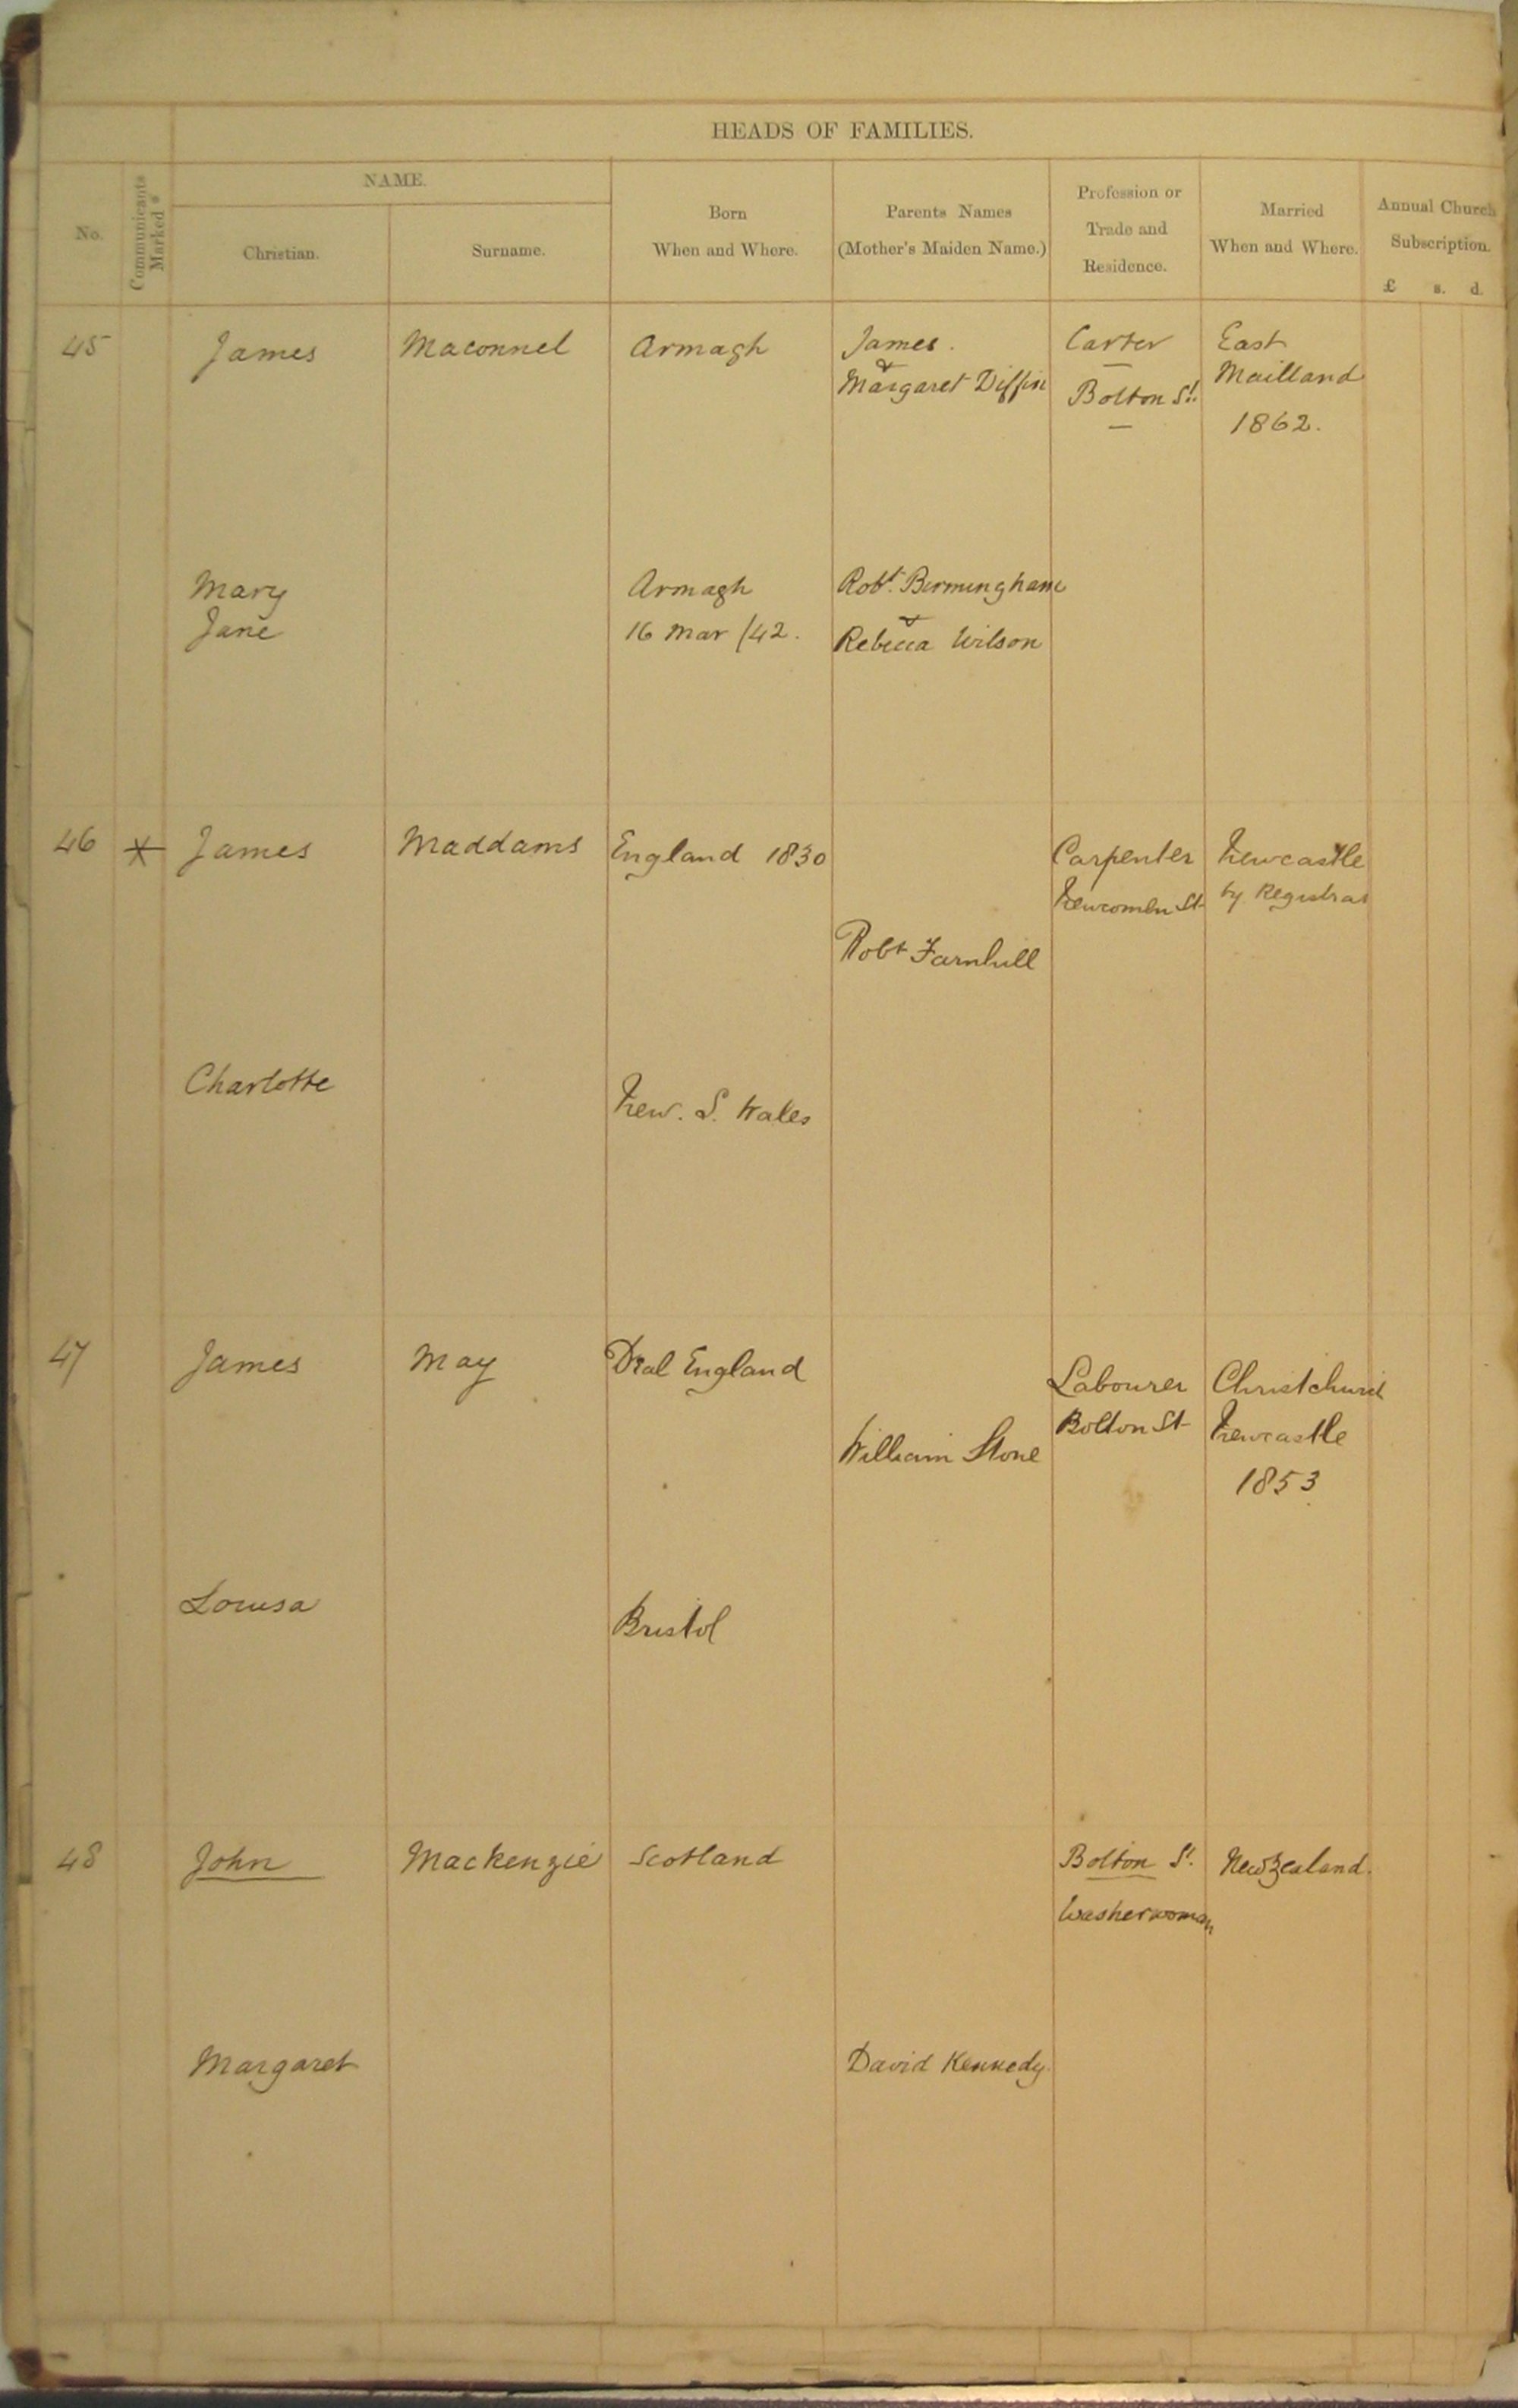 HEADS OF FAMILIES.
No.
Communicants Marked *
NAME.
Christian.
Surname.
Born
When and Where.
Parents Names
(Mother's Maiden Name.)
Profession or
Trade and
Residence.
Married
When and Where.
Annual Church
Subscription.
£ s. d.
45 James Maconnel Armagh James. Carter East
& Maitland
Margaret Diffin Bolton St. 1862.
Mary Armagh Robt. Birmingham
Jane 16 Mar /42. &
Rebecca Wilson
46 * James Maddams England 1830 Carpenter Newcastle
Newcomen St by Registrar
Robt Farnhill
Charlotte New. S. Wales
47 James May Deal England Labourer Christchurch
William Stone Bolton St Newcastle
1853
Louisa Bristol
48 John Mackenzie Scotland Bolton St. New Zealand.
Washerwoman
Margaret David Kennedy.